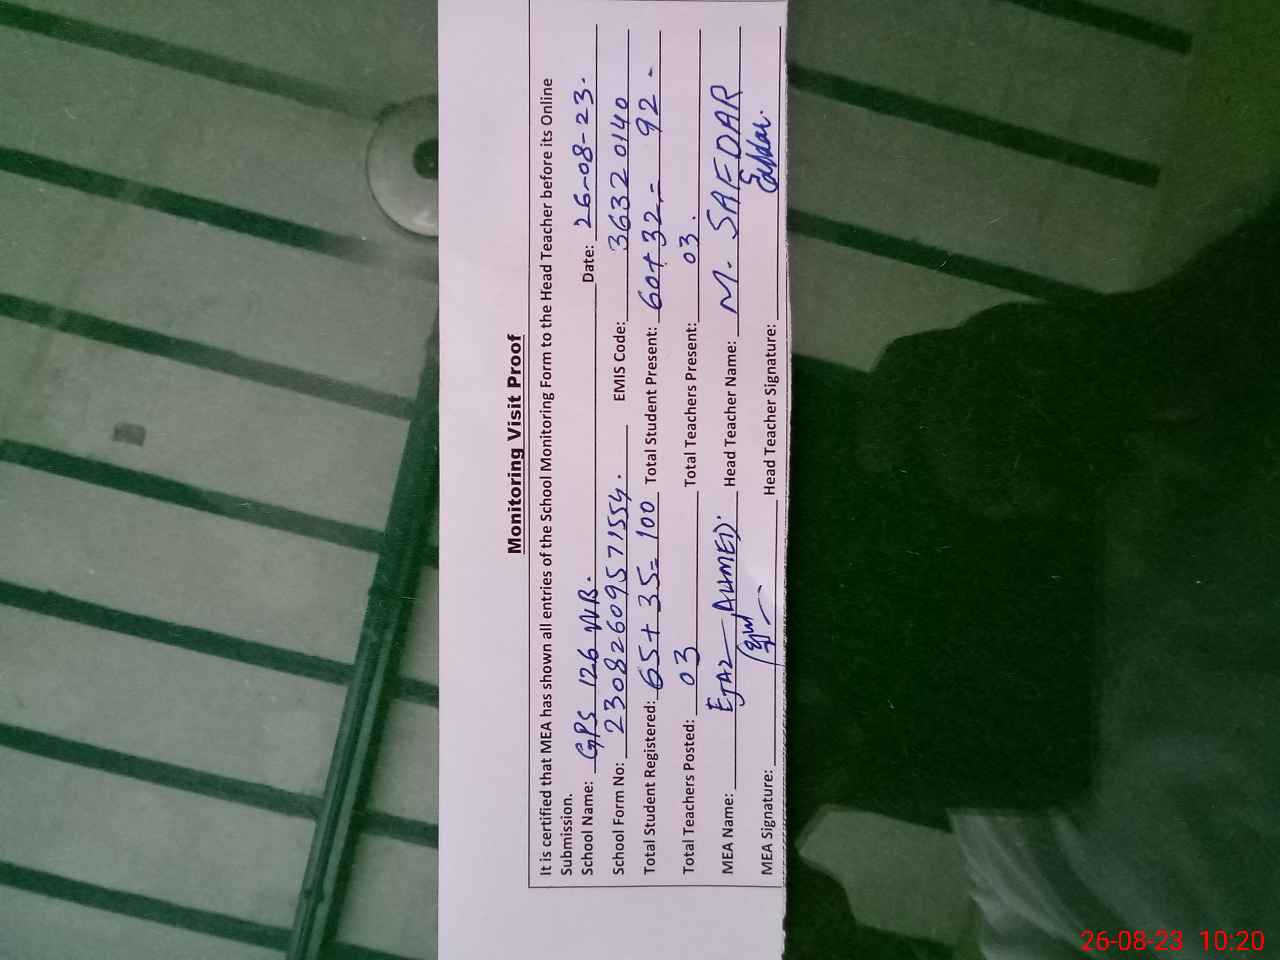 Monitoring Visit Proof
It is certified that MEA has shown all entries of the School Monitoring Form to the Head Teacher before its Online
Submission.
School Name: GPS 126 WB. Date: 26-08-23.
School Form No: 230826095 71554. EMIS Code: 3632 0140
Total Student Registered: 65+ 35= 100 Total Student Present: 60+32= 92 -
Total Teachers Posted: 03 Total Teachers Present: 03.
MEA Name: EJAZ AHMED. Head Teacher Name: M. SAFDAR
MEA Signature: Head Teacher Signature:
26-08-23 10:20